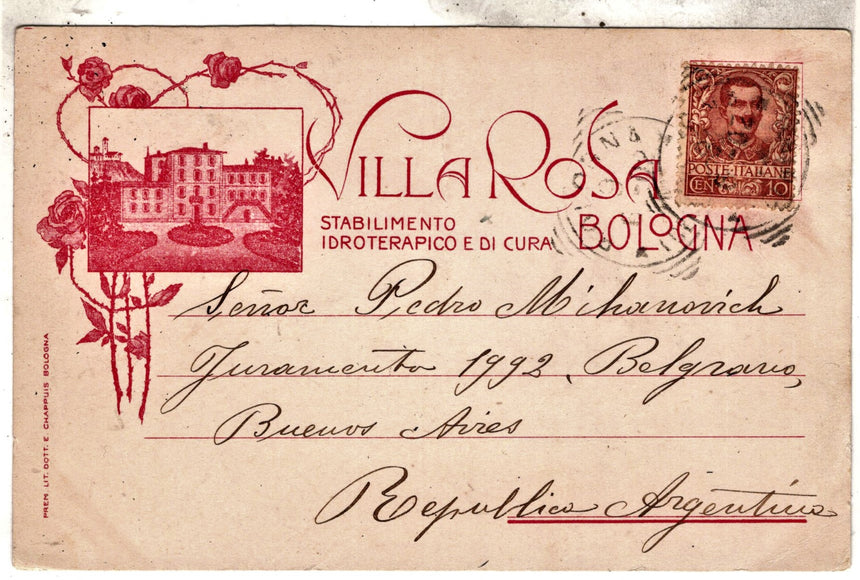 VILLA ROSA
STABILIMENTO
IDROTERAPICO E DI CURA
BOLOGNA
POSTE·ITALIANE
CEN 10
Señor Pedro Mihanovich
Juramento 1992, Belgrano,
Buenos Aires
Republica Argentina
PREM. LIT. DOTT. E. CHAPPUIS BOLOGNA